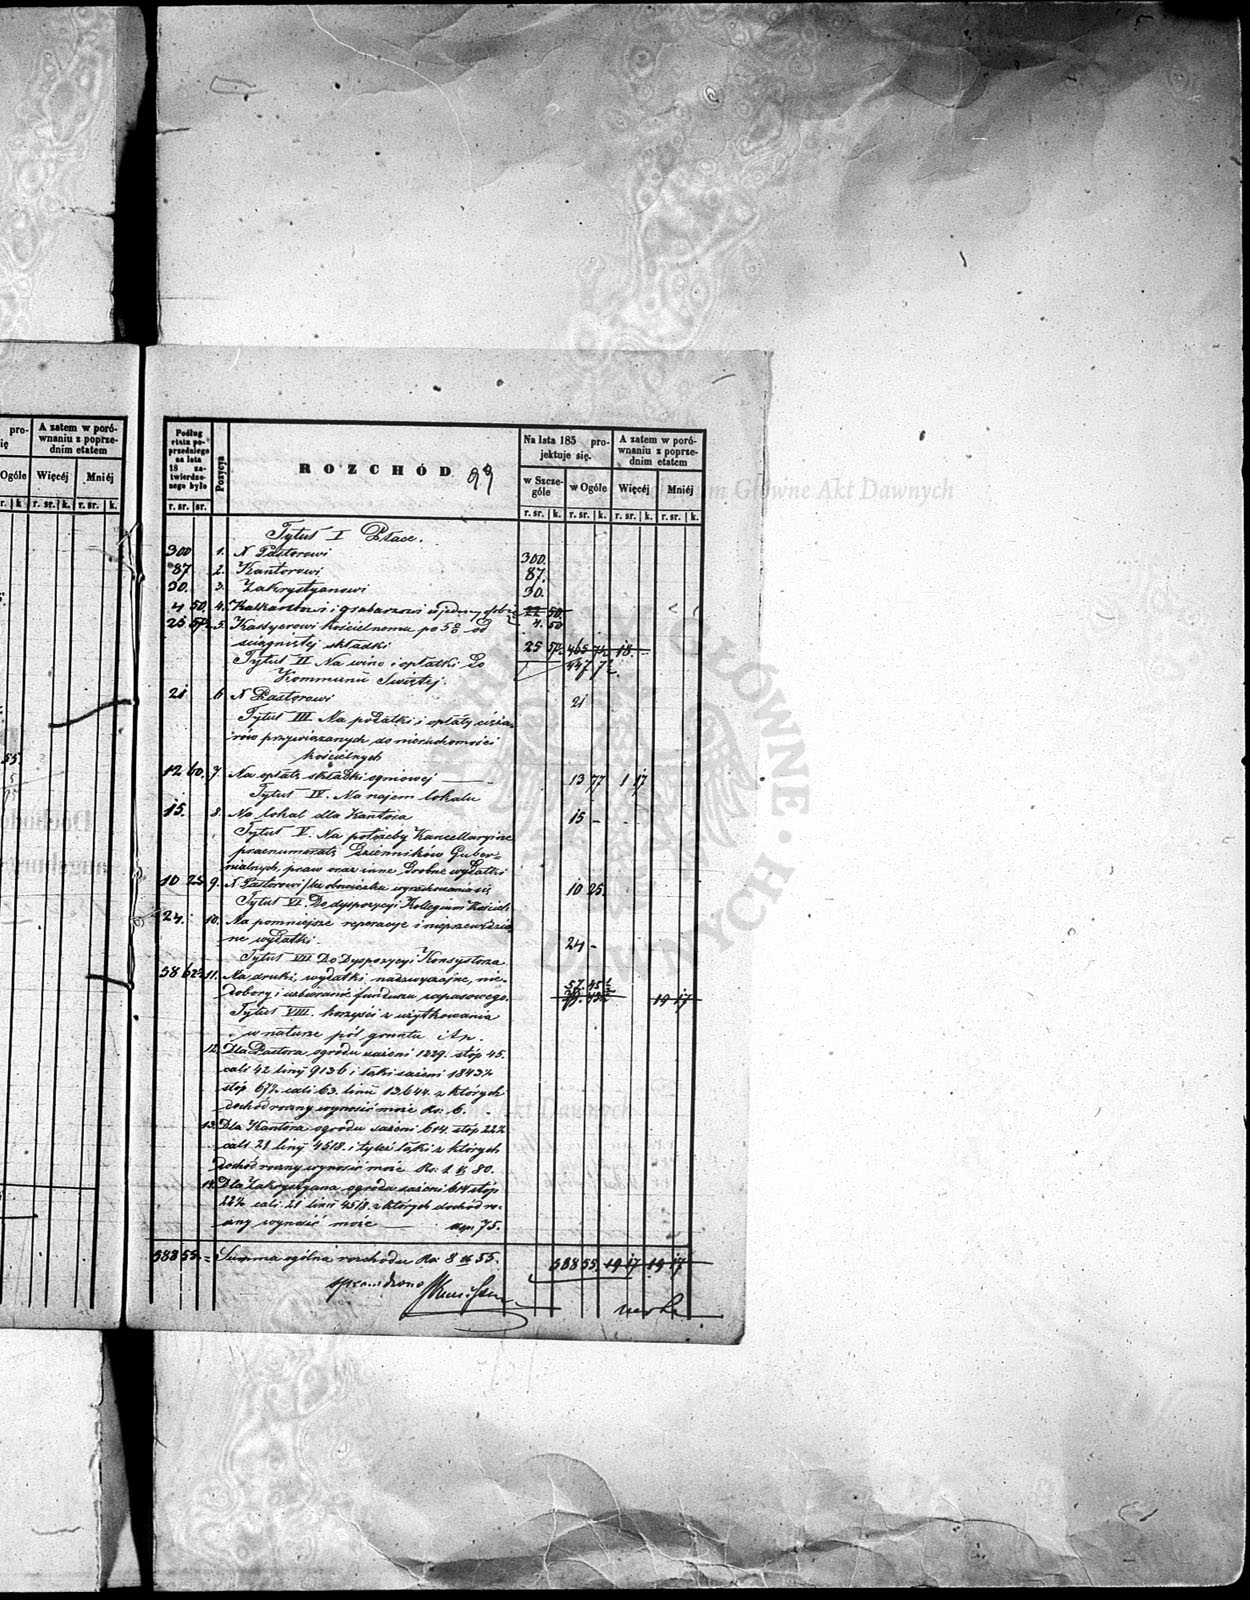 pro-
A zatem w poró-
wnaniu z poprze-
dnim etatem
Ogóle Więcéj Mniéj
r. k. r. sr. k. r. sr. k.
55.
Podług
etatu po-
przedniego
na lata
18 za-
twierdzo-
nego było
Pozycya
ROZCHÓD
99
Na lata 185 pro-
jektuje się.
A zatem w poró-
wnaniu z poprze-
dnim etatem
w Szcze-
góle
w Ogóle Więcéj Mniéj
r. sr. sr. r. sr. k. r. sr. k. r. sr. k. r. sr. k.
Tytuł I Płace.
300 1. N Pastorowi 300.
87 2. Kantorowi 87.
30. 3. Zakrystyanowi 30.
4 50. 4. i grabarzowi w jednej osobie 22 50. 4. 50
25 57½ 5. Kassyerowi kościelnemu po 5% od
ściągniętej składki 25 57½ 465 7½ 18. -
Tytuł II Na wino i opłatki do 447 7½
Kommunii Swiętej.
21 6 N Pastorowi 21
Tytuł III Na podatki i opłaty cięża-
rów przywiązanych do nieruchomości
kościelnych
12 60. 7. Na opłatę składki ogniowej 13 77 1 17
Tytuł IV. Na najem lokalu
15. 8. Na lokal dla Kantora 15 -
Tytuł V. Na potrzeby Kancellaryjne
praenumeratę Dzienników Guber-
nialnych, praw oraz inne drobne wydatki
10 25 9. N Pastorowi 10 25.
Tytuł VI. Do dyspozycyi Kollegium Kościel:
24. 10. Na pomniejsze reperacye i nieprzewidzia-
ne wydatki. 24 -
Tytuł VII Do Dyspozycyi Konsystorza
58 62½ 11. Na druki, wydatki nadzwyczajne, nie-
57. 45½
dobory i uzbieranie funduszu zapasowego. 19 17
Tytuł VIII. korzyści z użytkowania
w naturze pól gruntu itp.
12. Dla Pastora ogrodu sążeni 1229. stóp 45.
cali 42 linij 9136 i łąki sążeni 18432
stóp 67½ cali 63. linii 13644. z których
dochód roczny wynosić może Rs: 6.
13. Dla Kantora ogrodu sążeni 614. stóp 22½
cali 21 linij 4518. i tyleż łąki z których
dochód roczny wynosić może Rs: 1 k 80.
14. Dla Zakrystyana ogrodu sążeni 614 stóp
22½ cali 21 linii 4518. z których dochód ro-
czny wynosić może kop. 75.
588 55. Summa ogólna rozchodu Rs: 8 k 55. 588 55 19 17 19 17
sprawdzono